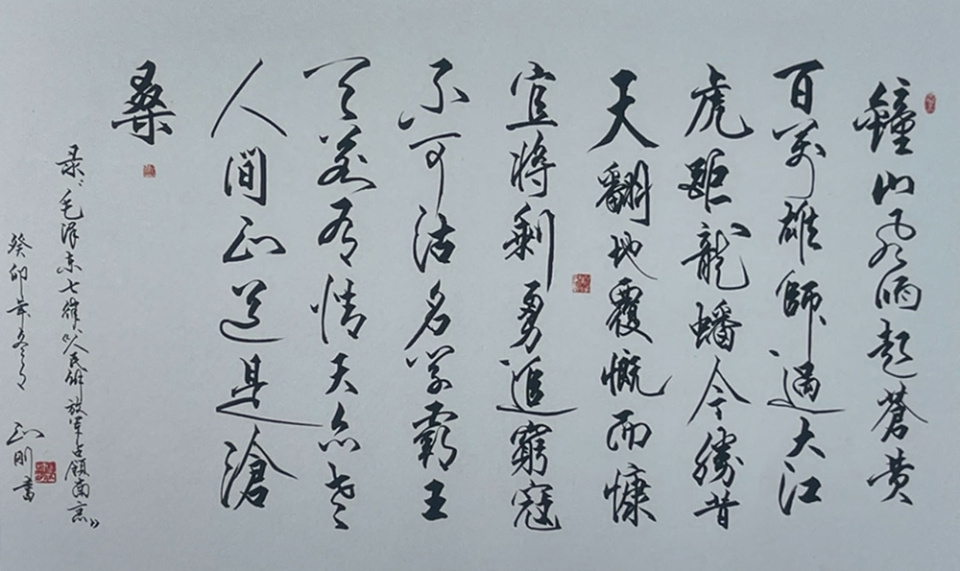 鐘山風雨起蒼黄
百萬雄師過大江
虎距龍蟠今勝昔
天翻地覆慨而慷
宜將剩勇追窮寇
不可沽名学霸王
天若有情天亦老
人間正道是滄
桑
录毛泽东七律《人民解放军占領南京》
癸卯年冬月 正刚書